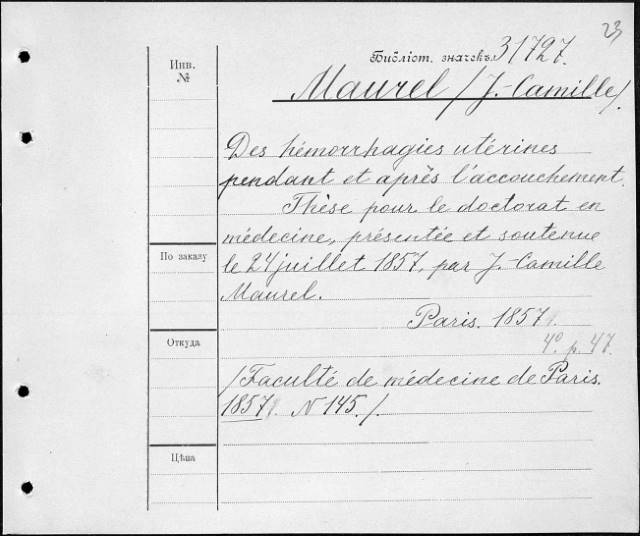 23
Библіот. значекъ 31727.
Инв.
№
Maurel /J.-Camille/.
Des hémorrhagies utérines
pendant et après l'accouchement.
Thèse pour le doctorat en
médecine, présentée et soutenue
По заказу
le 24 juillet 1857, par J.-Camille
Maurel.
Paris. 1857.
Откуда
4° p. 47.
/Faculté de médecine de Paris.
1857. N 145./.
Цѣна